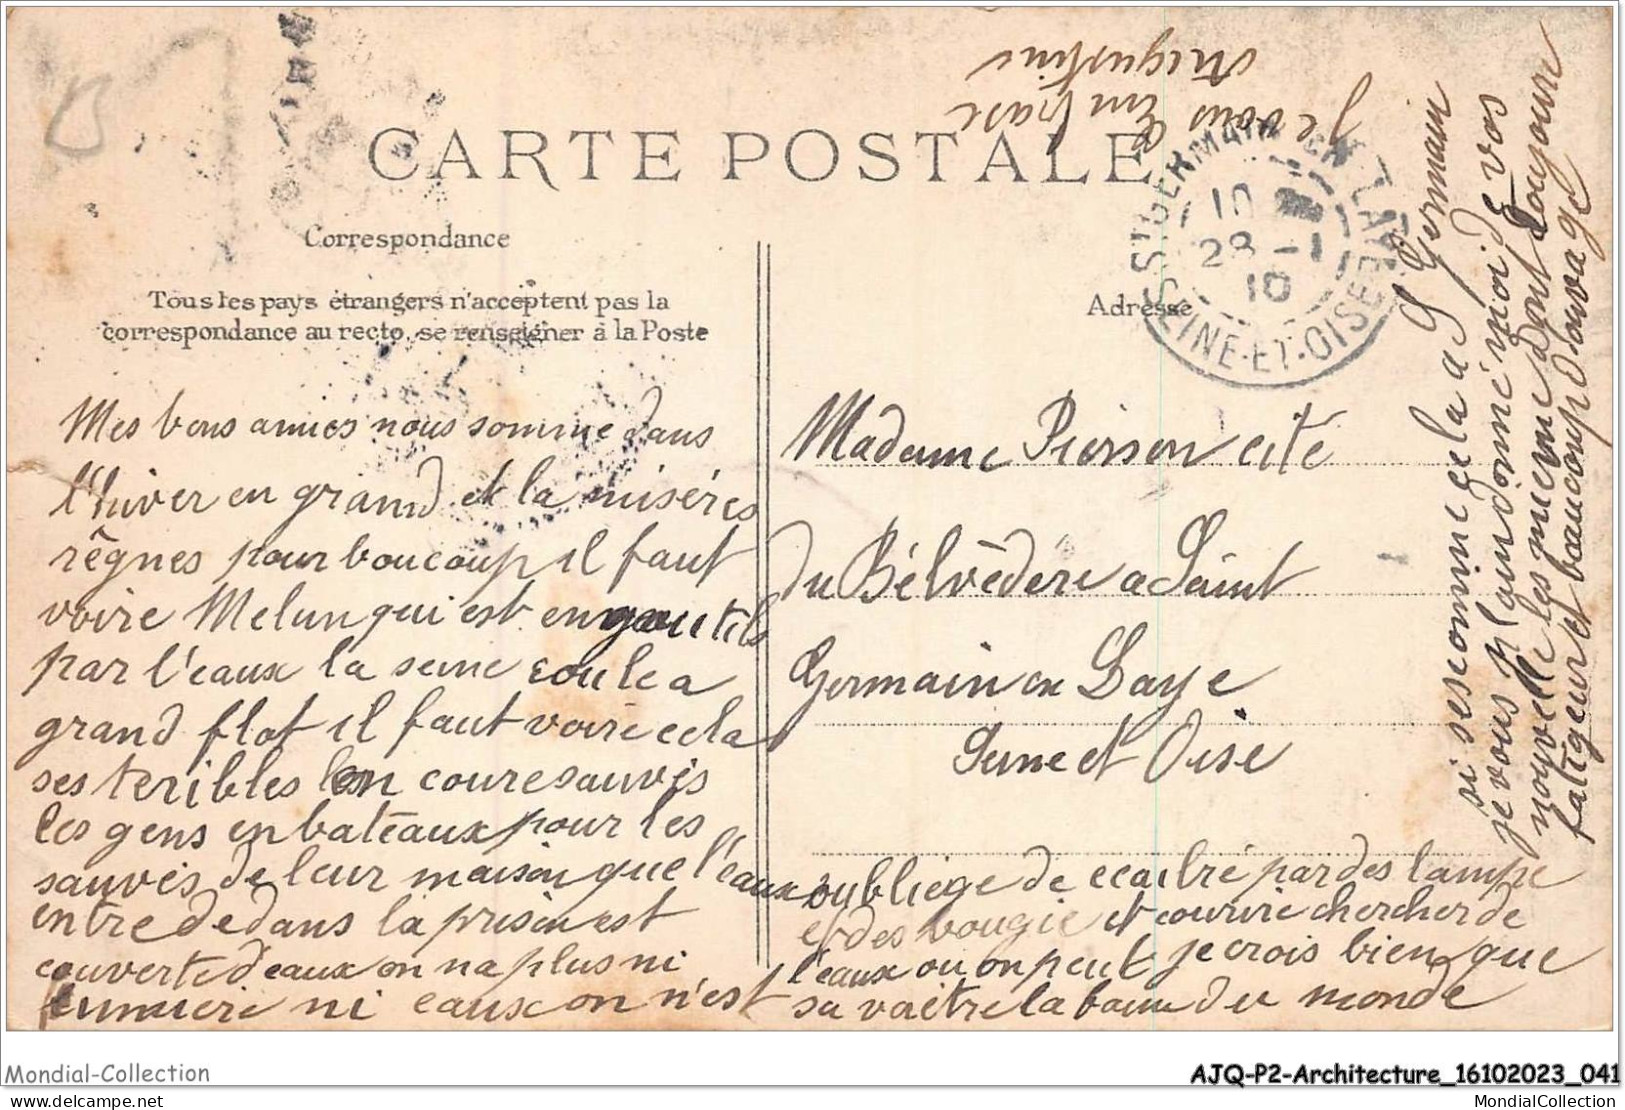 CARTE POSTALE
Correspondance
Tous les pays étrangers n'acceptent pas la
correspondance au recto, se renseigner à la Poste
Adresse
ST GERMAIN EN LAYE
10
28 - 1
10
SEINE-ET-OISE
Mes bons amies nous somme dans
l'hiver en grand et la miséres
rêgnes pour boucoup il faut
voire Melun qui est engoutils
par l'eaux la seine coule a
grand flot il faut voire cela
ses teribles len coure sauvés
les gens en bateaux pour les
sauvés de leur maison que l'eaux
entre dedans la prison est
couverte deaux on na plus ni
lumiere ni eaux on n'est
oubliege de ecailré par des lampe
et des bougie et courire chercher de
l'eaux ou on peut je crois bien que
sa va être la bam du monde
Madame Pierson cité
du Bélvèdére a Saint
Germain en Laye
Seine et Oise
si ses comme cela a S Germain
je vous plain donné moi d vos
nouvelle les mienne dont toujour
fatigeur et baucoup d'ouvage
Je vous embrase
Augustine
Mondial-Collection
AJQ-P2-Architecture_16102023_041
delcampe.net
MondialCollection